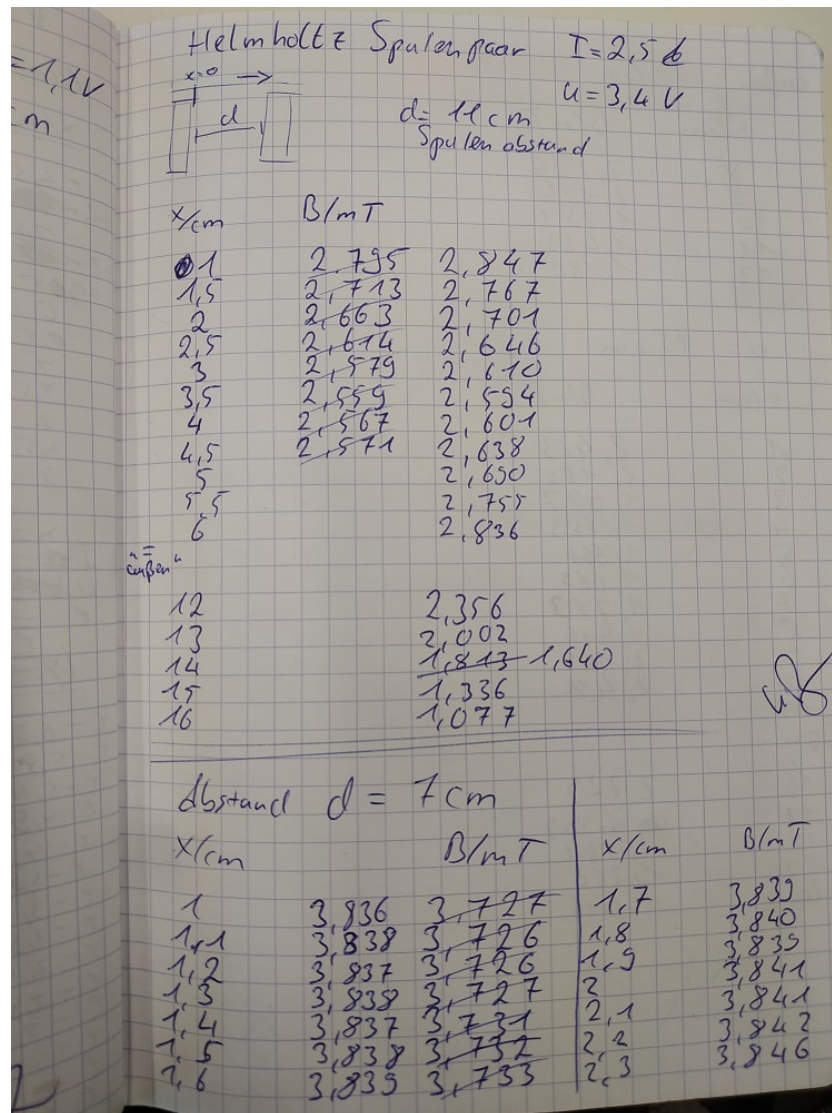 =1,1V
m
Helmholtz Spulenpaar I=2,5 A
U=3,4 V
x=0
d
d= 11cm
Spulenabstand
x/cm B/mT
1 2,795 2,847
1,5 2,713 2,767
2 2,663 2,701
2,5 2,614 2,646
3 2,579 2,610
3,5 2,559 2,594
4 2,567 2,601
4,5 2,571 2,638
5 2,690
5,5 2,755
6 2,836
"=
außen"
12 2,356
13 2,002
14 1,813 1,640
15 1,336
16 1,077
Abstand d = 7cm
x/cm B/mT x/cm B/mT
1 3,836 3,727 1,7 3,839
1,1 3,838 3,726 1,8 3,840
1,2 3,837 3,726 1,9 3,839
1,3 3,838 3,727 2 3,841
1,4 3,837 3,731 2,1 3,841
1,5 3,838 3,732 2,2 3,842
1,6 3,839 3,733 2,3 3,846